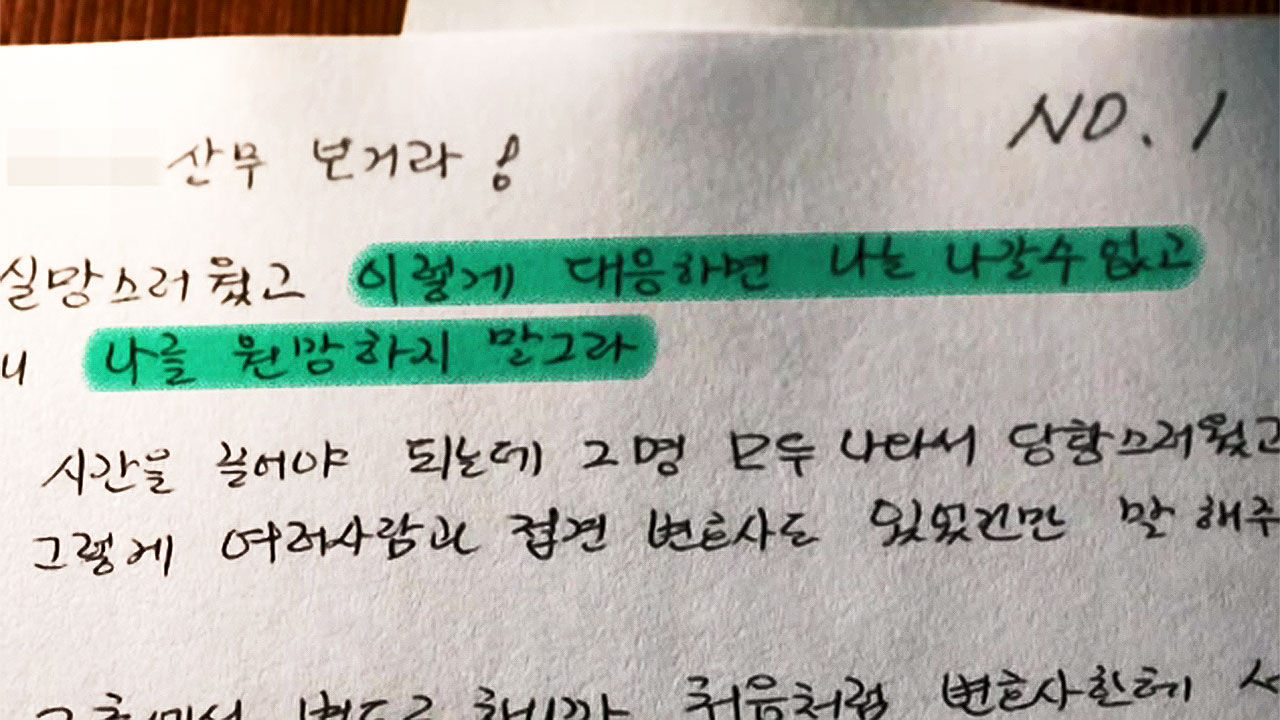 NO. 1
산무 보거라 !
실망스러웠고 이렇게 대응하면 나는 나갈수 없고
니 나를 원망하지 말그라
시간을 끌어야 되는데 2명 모두 나타서 당황스러웠고
그렇게 여러사람과 접견 변호사도 있었건만 말해주
처음처럼 변호사한테